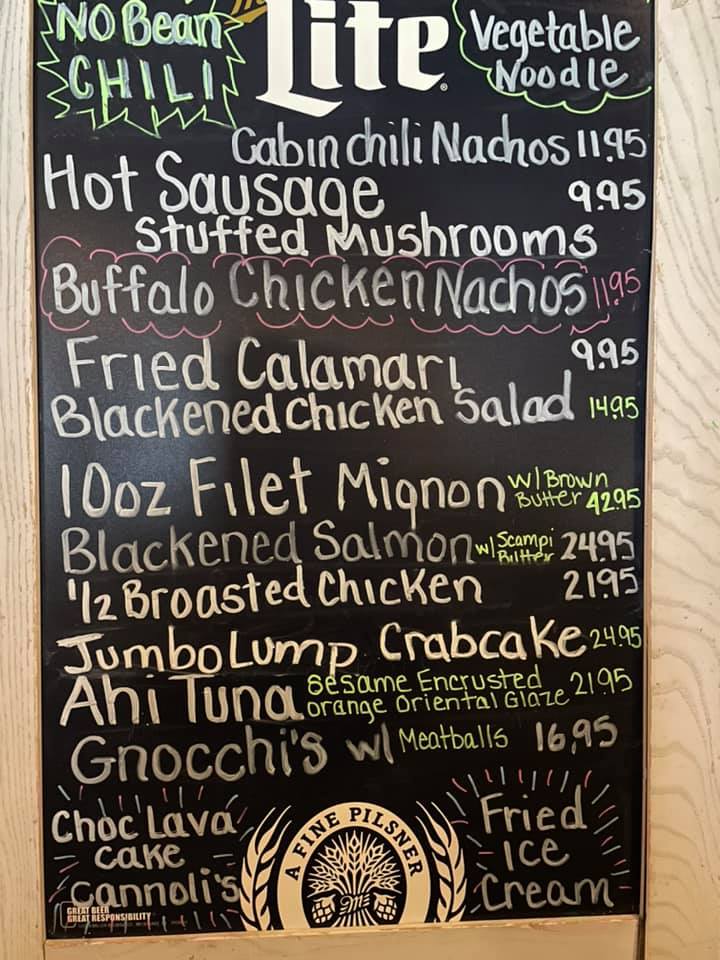 NO Bean
CHILI
Lite
Vegetable
Noodle
Cabin chili Nachos 11.95
Hot Sausage 9.95
Stuffed Mushrooms
Buffalo Chicken Nachos 11.95
Fried Calamari 9.95
Blackened Chicken Salad 14.95
10oz Filet Mignon w/ Brown
Butter 42.95
Blackened Salmon w/ Scampi
Butter 24.95
1/2 Broasted Chicken 21.95
Jumbo Lump Crabcake 24.95
Ahi Tuna Sesame Encrusted
orange Oriental Glaze 21.95
Gnocchi's w/ Meatballs 16.95
Choc Lava
cake
Cannoli's
A FINE PILSNER
Fried
Ice
Cream
GREAT BEER
GREAT RESPONSIBILITY